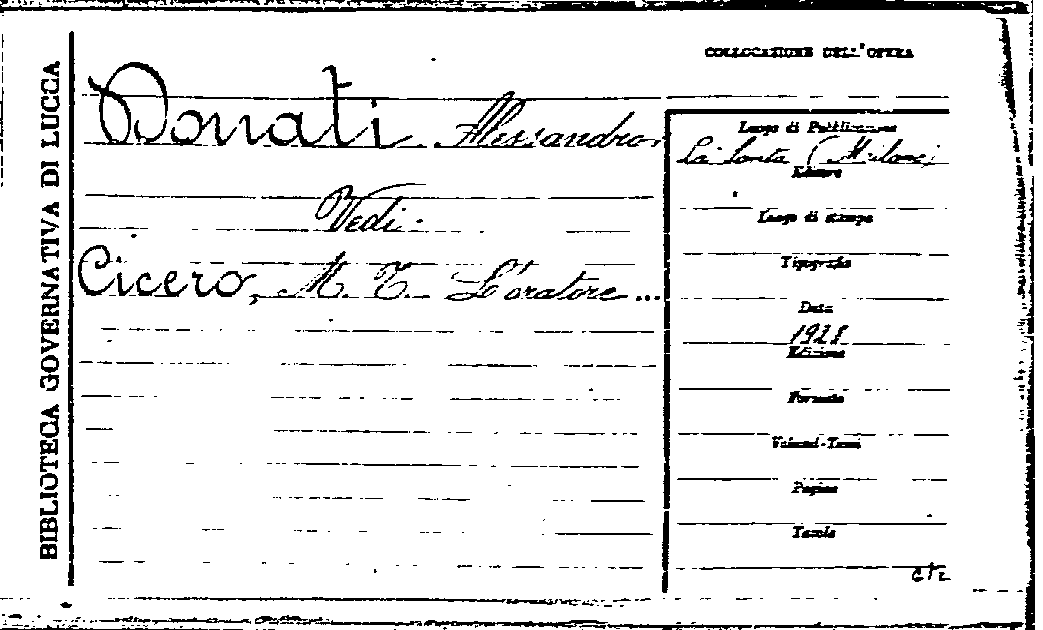 BIBLIOTECA GOVERNATIVA DI LUCCA
COLLOCAZIONE DELL'OPERA
Donati Alessandro
Vedi
Cicero, M. T. L'oratore ...
Luogo di Pubblicazione
(Milano)
Editore
Luogo di stampa
Tipografia
Data
1928
Edizione
Formato
Volumi-Tomi
Pagine
Tavole